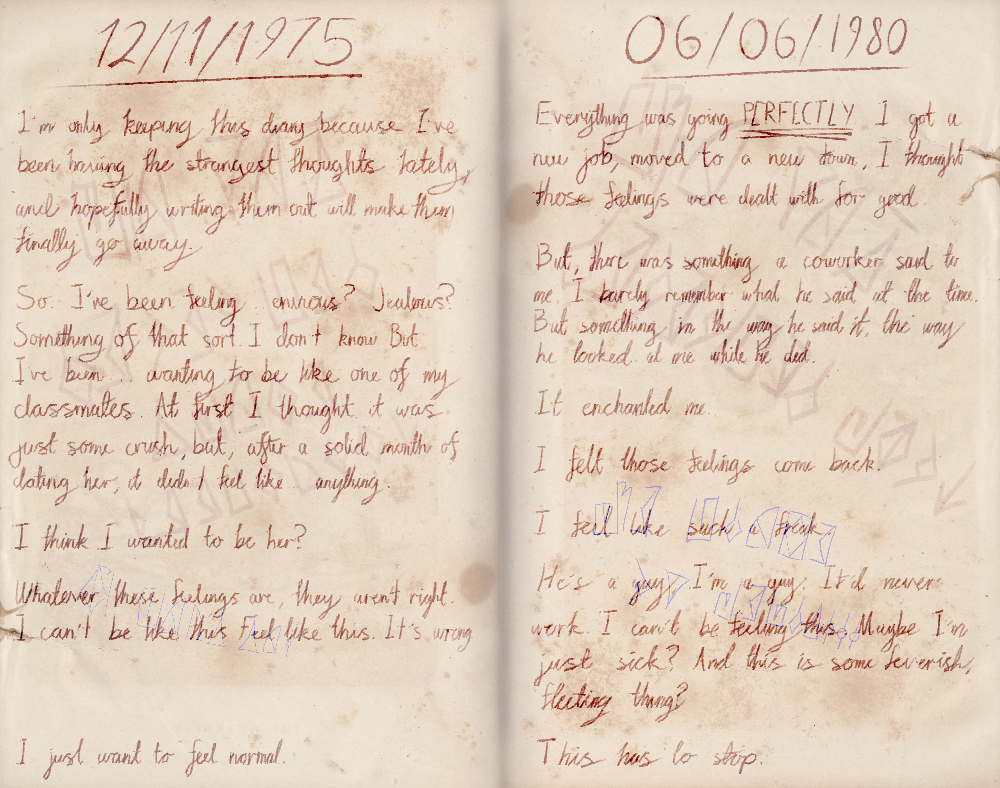 12/11/1975
I'm only keeping this diary because I've
been having the strangest thoughts lately,
and hopefully writing them out will make them
finally go away.
So. I've been feeling... envious? Jealous?
Something of that sort. I don't know. But
I've been... wanting to be like one of my
classmates. At first I thought it was
just some crush, but, after a solid month of
dating her, it didn't feel like... anything.
I think I wanted to be her?
Whatever these feelings are, they aren't right.
I can't be like this. Feel like this. It's wrong.
I just want to feel normal.
06/06/1980
Everything was going PERFECTLY. I got a
new job, moved to a new town, I thought
those feelings were dealt with for good.
But, there was something a coworker said to
me. I barely remember what he said at the time.
But something in the way he said it, the way
he looked at me while he did.
It enchanted me.
I felt those feelings come back.
I feel like such a freak.
He's a guy, I'm a guy. It'd never
work. I can't be feeling this. Maybe I'm
just sick? And this is some feverish,
fleeting thing?
This has to stop.